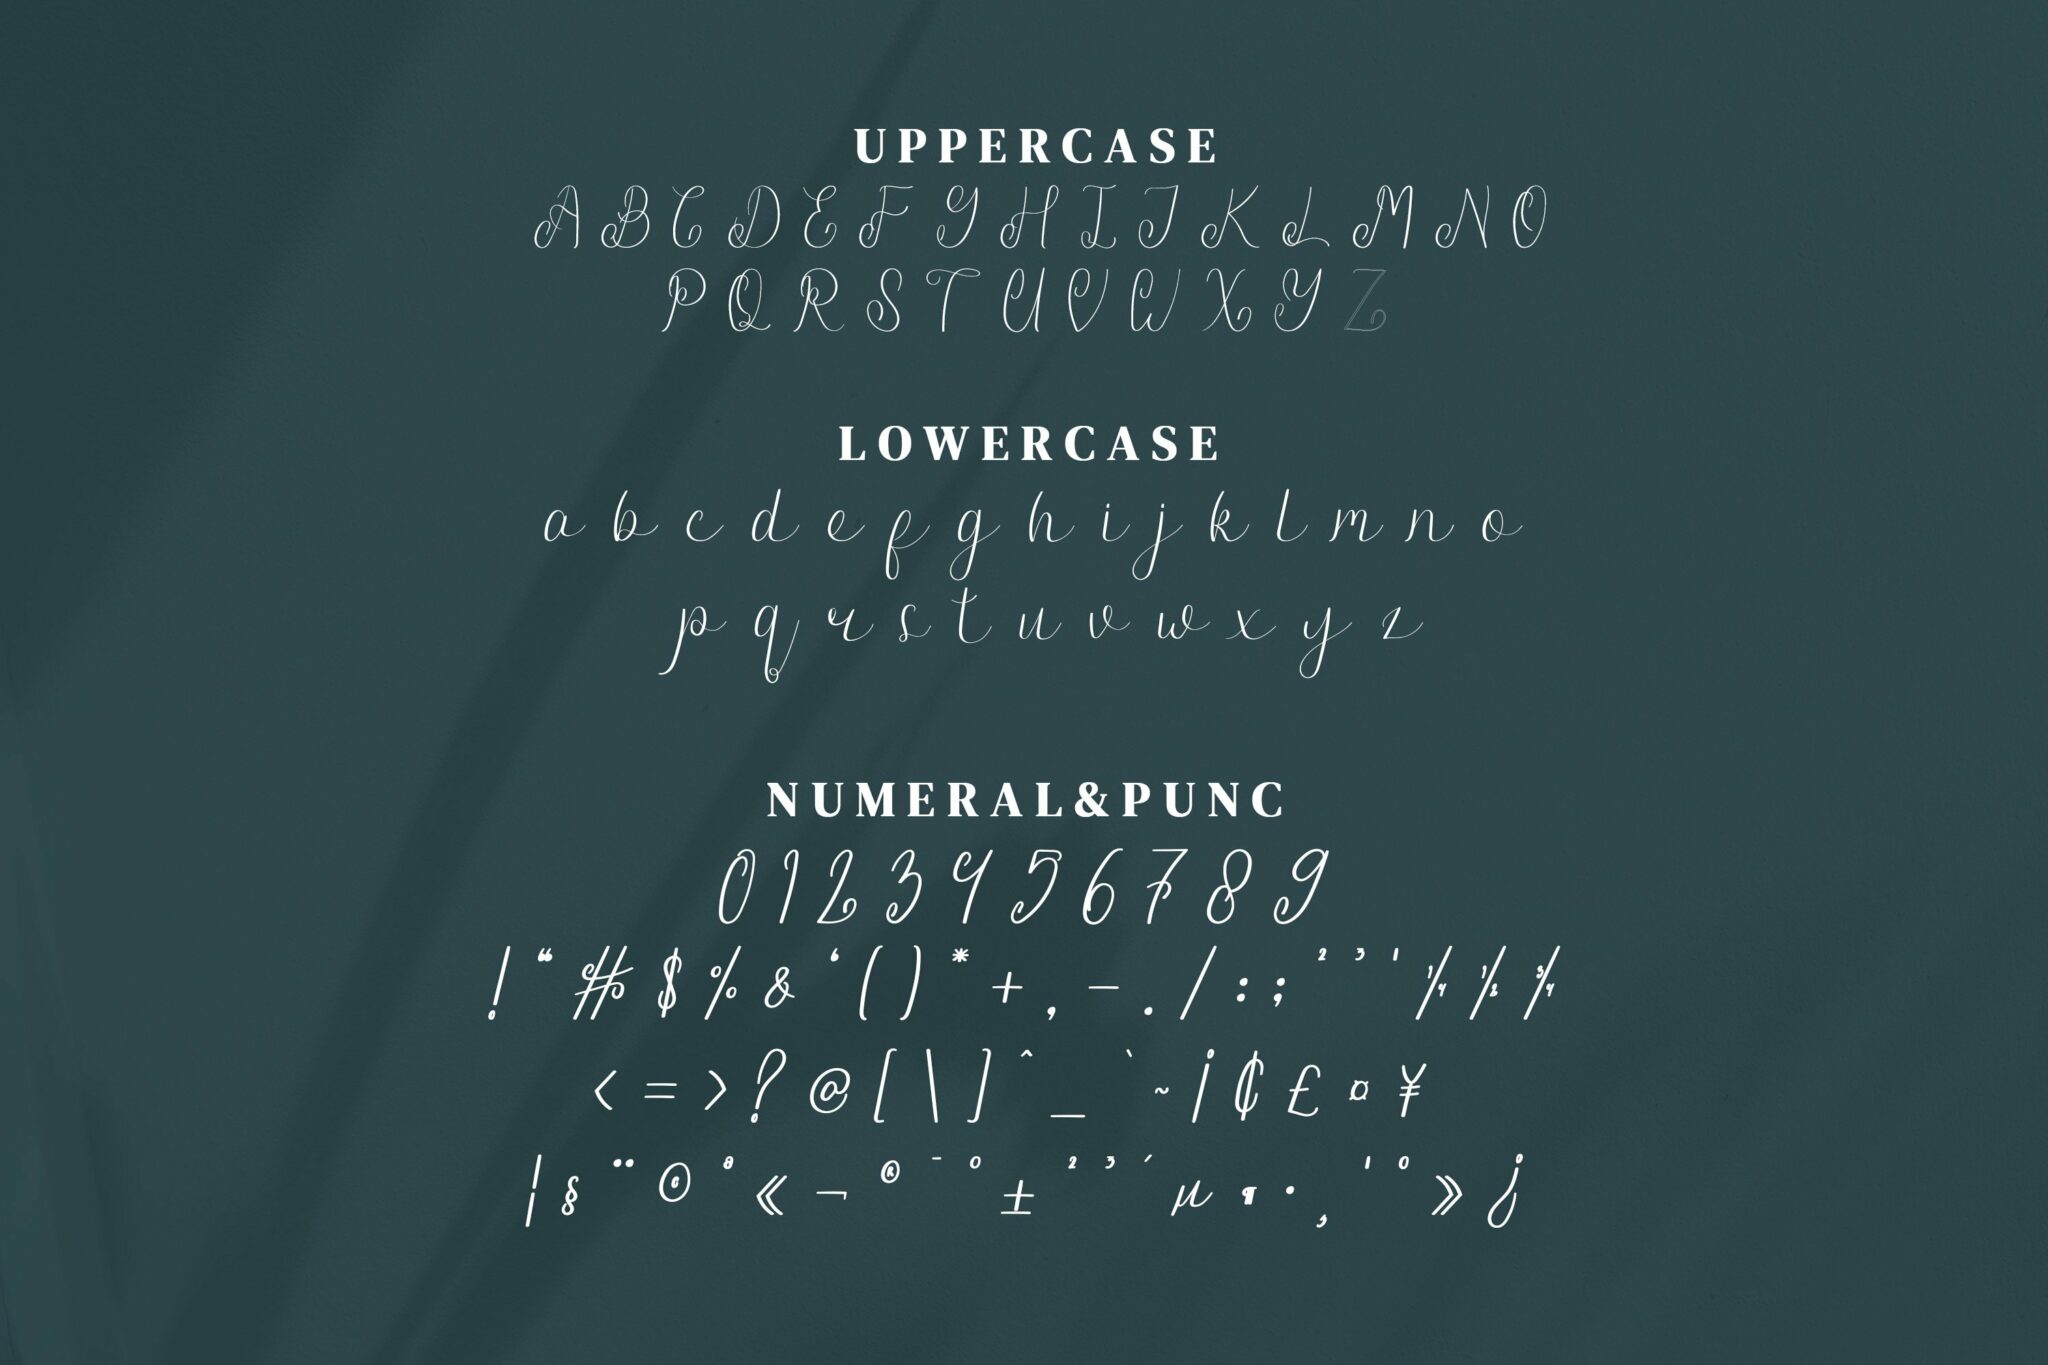 UPPERCASE
A B C D E F G H I J K L M N O
P Q R S T U V W X Y Z
LOWERCASE
a b c d e f g h i j k l m n o
p q r s t u v w x y z
NUMERAL&PUNC
0 1 2 3 4 5 6 7 8 9
! “ # $ % & ‘ ( ) * + , - . / : ; ² ³ ¹ ¼ ½ ¾
< = > ? @ [ \ ] ^ _ ` ~ ¡ ¢ £ ¤ ¥
¦ § ¨ © ª « ¬ ® ¯ ° ± ² ³ ´ µ ¶ · ¸ ¹ º » ¿